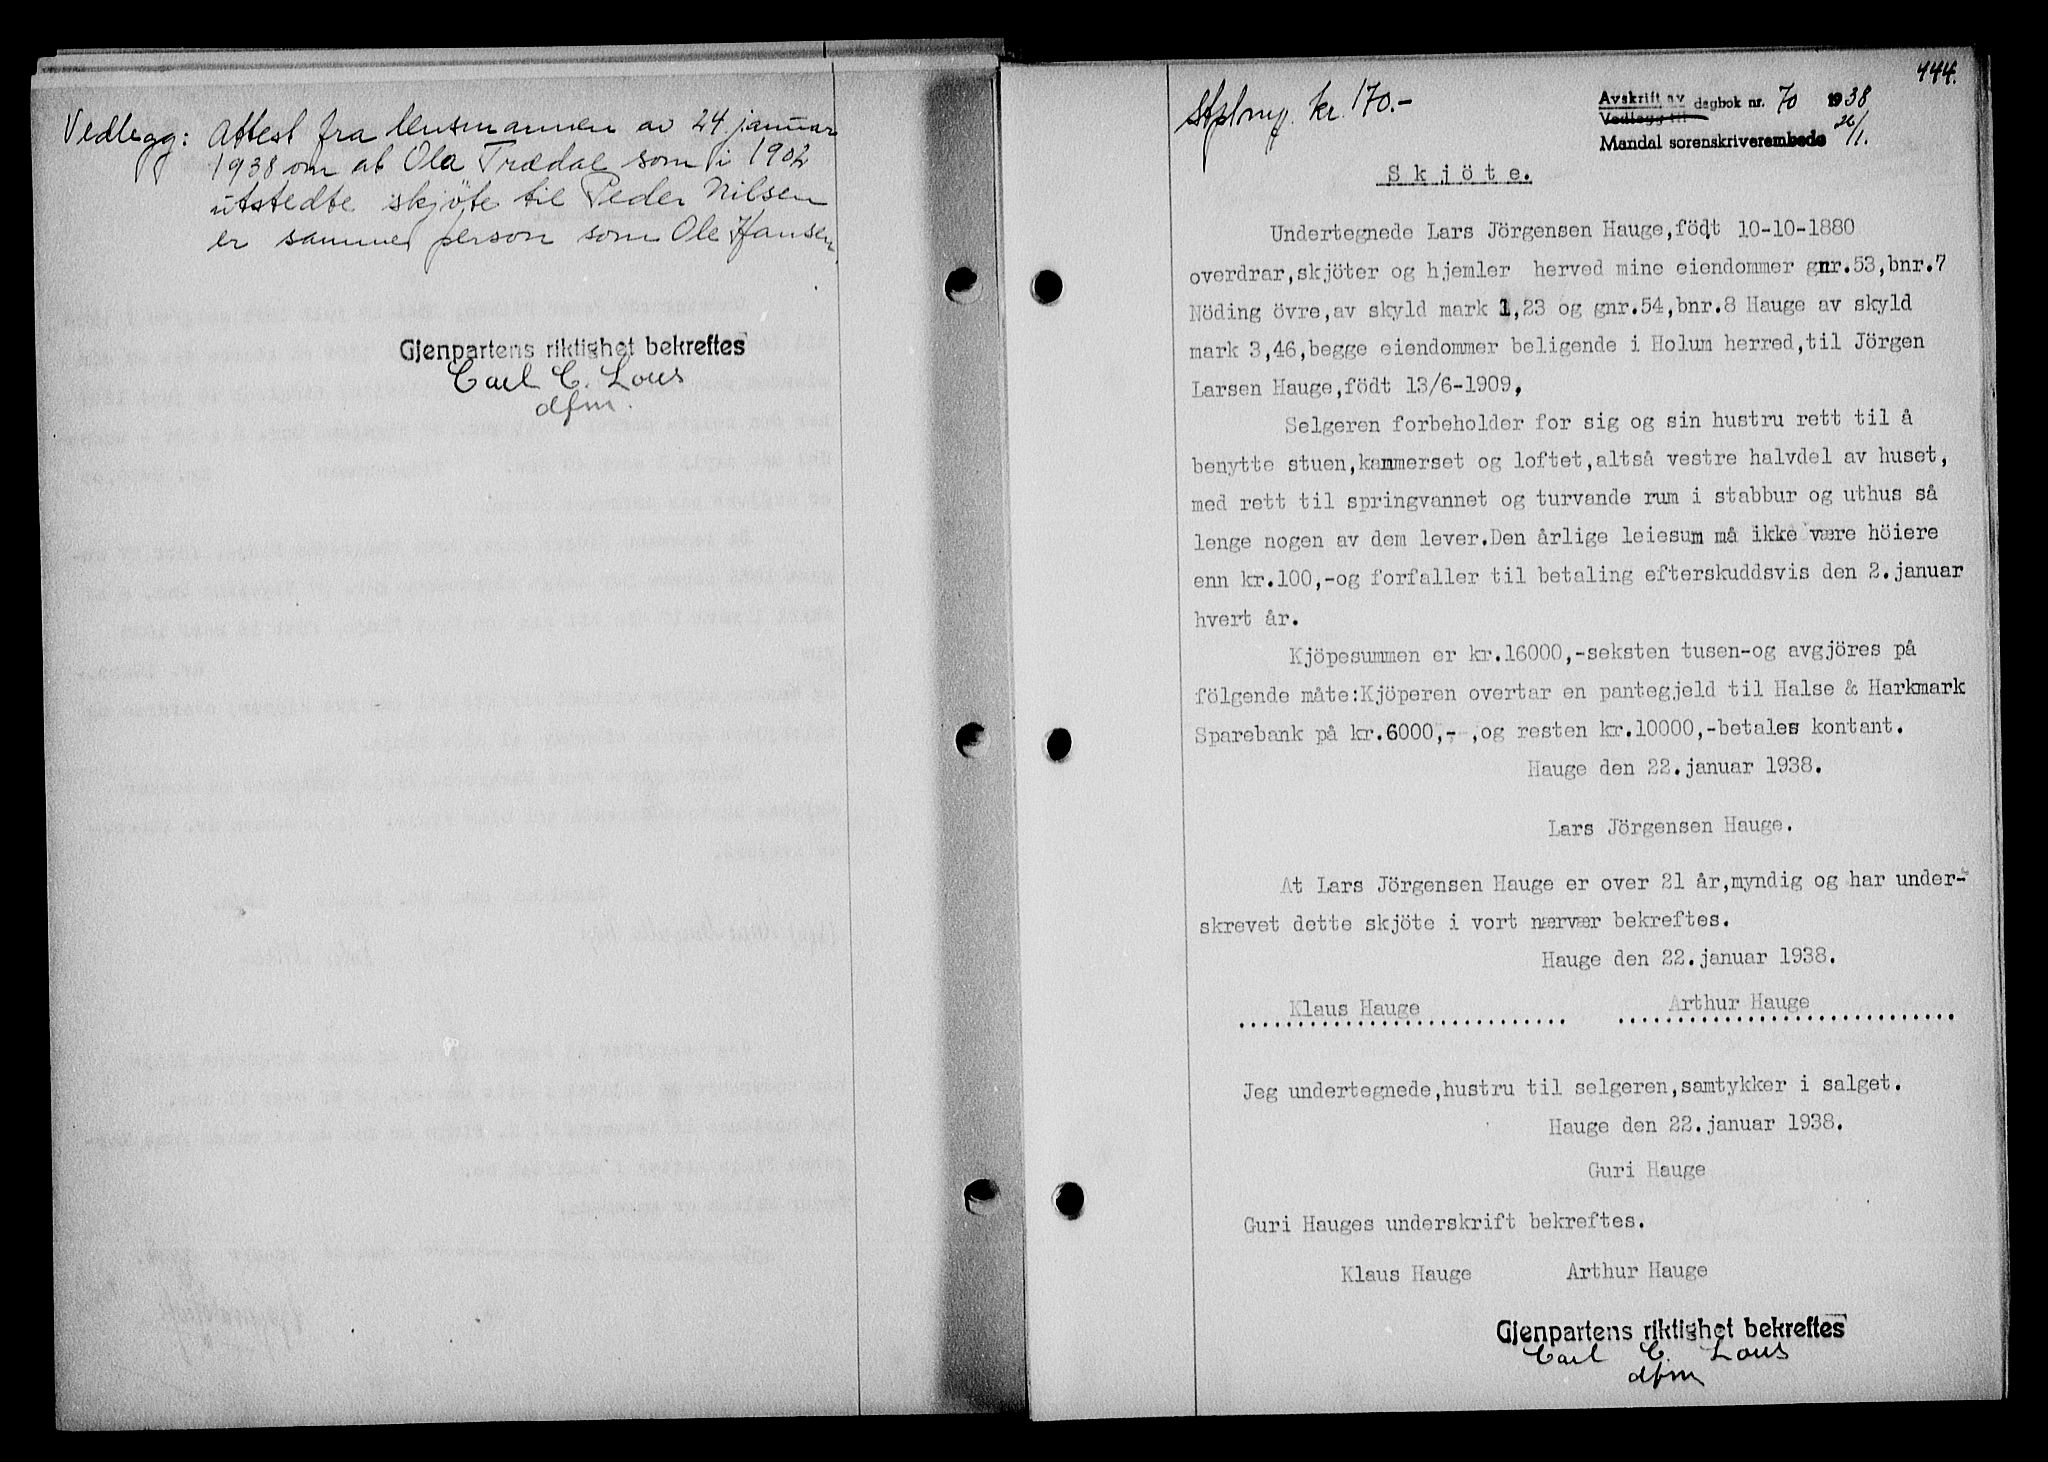 Vedlegg: Attest fra lensmannen av 24. januar
1938 om at Ola Trædal som i 1902
utstedte skjöte til Peder Nilsen
er samme person som Ole Hansen.
Gjenpartens riktighet bekreftes
Carl C. Lous
dfm.
444.
kr. 170.-
Avskrift av
Vedlegg til
dagbok nr. 70 1938
26/1.
Mandal sorenskriverembede
Skjöte.
Undertegnede Lars Jörgensen Hauge,födt 10-10-1880
overdrar,skjöter og hjemler herved mine eiendommer gnr.53,bnr.7
Nöding övre,av skyld mark 1,23 og gnr.54,bnr.8 Hauge av skyld
mark 3,46,begge eiendommer beligende i Holum herred,til Jörgen
Larsen Hauge,födt 13/6-1909,
Selgeren forbeholder for sig og sin hustru rett til å
benytte stuen,kammerset og loftet,altså vestre halvdel av huset,
med rett til springvannet og turvande rum i stabbur og uthus så
lenge nogen av dem lever.Den årlige leiesum må ikke være höiere
enn kr.100,-og forfaller til betaling efterskuddsvis den 2.januar
hvert år.
Kjöpesummen er kr.16000,-seksten tusen-og avgjöres på
fölgende måte:Kjöperen overtar en pantegjeld til Halse & Harkmark
Sparebank på kr.6000,- ,og resten kr.10000,-betales kontant.
Hauge den 22.januar 1938.
Lars Jörgensen Hauge.
At Lars Jörgensen Hauge er over 21 år,myndig og har under-
skrevet dette skjöte i vort nærvær bekreftes.
Hauge den 22.januar 1938.
Klaus Hauge Arthur Hauge
Jeg undertegnede,hustru til selgeren,samtykker i salget.
Hauge den 22.januar 1938.
Guri Hauge
Guri Hauges underskrift bekreftes.
Klaus Hauge Arthur Hauge
Gjenpartens riktighet bekreftes
Carl C. Lous
dfm